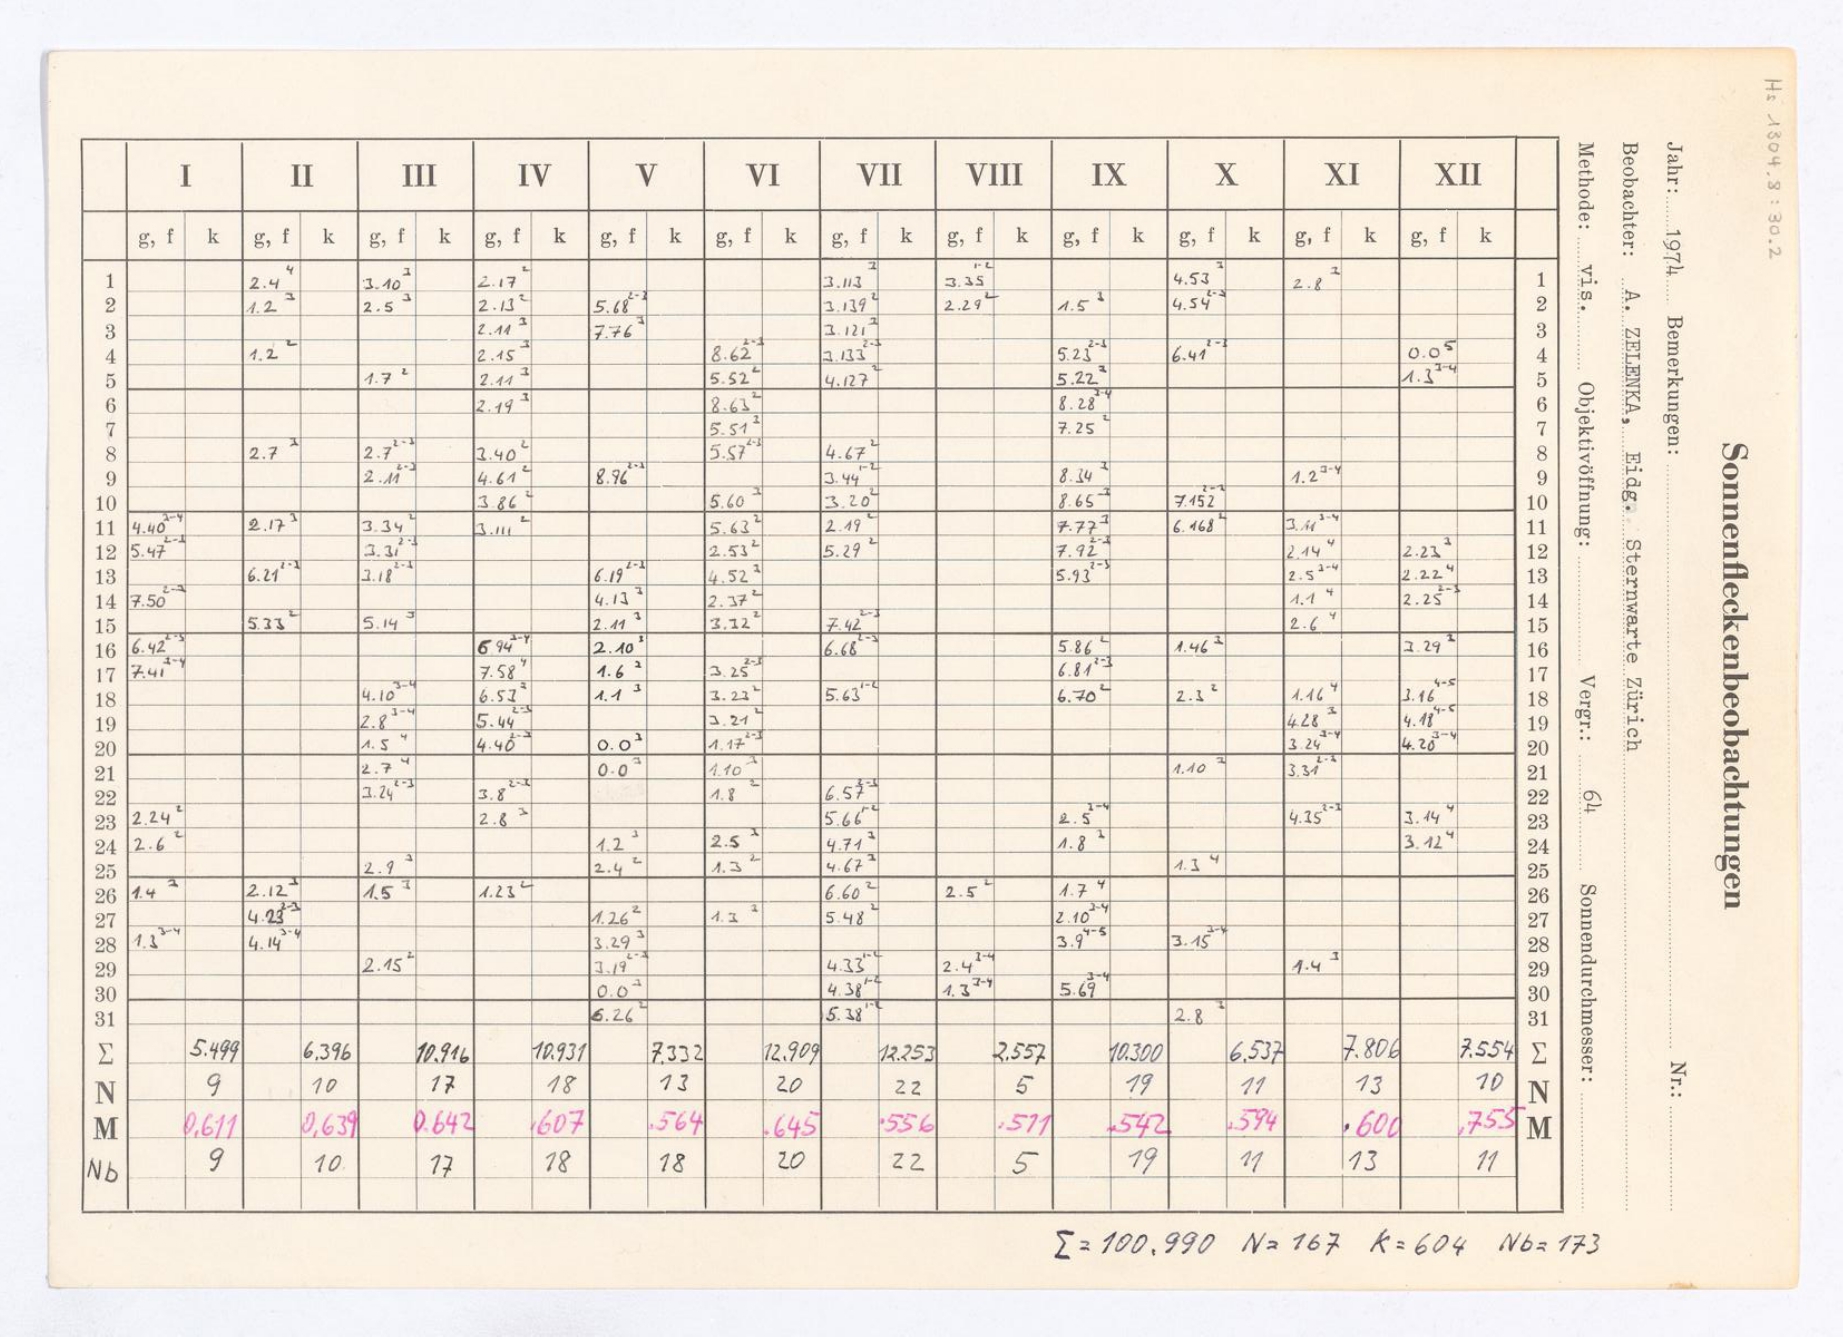 Hs 1304.8 : 30.2
Sonnenfleckenbeobachtungen
Jahr: 1974 Bemerkungen: Nr.:
Beobachter: A. ZELENKA, Eidg. Sternwarte Zürich
Methode: vis. Objektivöffnung: Vergr.: 64 Sonnendurchmesser:
I II III IV V VI VII VIII IX X XI XII
g, f k g, f k g, f k g, f k g, f k g, f k g, f k g, f k g, f k g, f k g, f k g, f k
1 2.4⁴ 3.10³ 2.17² 3.113² 3.35¹⁻² 4.53³ 2.8³ 1
2 1.2³ 2.5³ 2.13² 5.68²⁻³ 3.139² 2.29² 1.5³ 4.54²⁻³ 2
3 2.11³ 7.76³ 3.121² 3
4 1.2² 2.15³ 8.62²⁻³ 3.133²⁻³ 5.23²⁻³ 6.41²⁻³ 0.0⁵ 4
5 1.7² 2.11³ 5.52² 4.127² 5.22³ 1.3³⁻⁴ 5
6 2.19³ 8.63² 8.28³⁻⁴ 6
7 5.51² 7.25² 7
8 2.7³ 2.7²⁻³ 3.40² 5.57²⁻³ 4.67² 8
9 2.11²⁻³ 4.61² 8.96²⁻³ 3.44¹⁻² 8.34³ 1.2³⁻⁴ 9
10 3.86² 5.60³ 3.20² 8.65³ 7.152²⁻³ 10
11 4.40³⁻⁴ 2.17³ 3.34² 3.111² 5.63² 2.19² 7.77³ 6.168² 3.11³⁻⁴ 11
12 5.47²⁻³ 3.31²⁻³ 2.53² 5.29² 7.92²⁻³ 2.14⁴ 2.23³ 12
13 6.21²⁻³ 3.18²⁻³ 6.19²⁻³ 4.52³ 5.93²⁻³ 2.5³⁻⁴ 2.22⁴ 13
14 7.50²⁻³ 4.13³ 2.37² 1.1⁴ 2.25²⁻³ 14
15 5.33² 5.14³ 2.11³ 3.32² 7.42²⁻³ 2.6⁴ 15
16 6.42²⁻³ 6.94³⁻⁴ 2.10³ 6.68²⁻³ 5.86² 1.46³ 3.29³ 16
17 7.41³⁻⁴ 7.58⁴ 1.6³ 3.25²⁻³ 6.81²⁻³ 17
18 4.10³⁻⁴ 6.53³ 1.1³ 3.23² 5.63¹⁻² 6.70² 2.3² 1.16⁴ 3.16⁴⁻⁵ 18
19 2.8³⁻⁴ 5.44²⁻³ 3.21² 4.28³ 4.18⁴⁻⁵ 19
20 1.5⁴ 4.40²⁻³ 0.0³ 1.17²⁻³ 3.24³⁻⁴ 4.20³⁻⁴ 20
21 2.7⁴ 0.0³ 1.10³ 1.10³ 3.31²⁻³ 21
22 3.24²⁻³ 3.8²⁻³ 1.8² 6.57²⁻³ 22
23 2.24² 2.8³ 5.66¹⁻² 2.5³⁻⁴ 4.35²⁻³ 3.14⁴ 23
24 2.6² 1.2³ 2.5³ 4.71³ 1.8³ 3.12⁴ 24
25 2.9³ 2.4² 1.3² 4.67³ 1.3⁴ 25
26 1.4³ 2.12³ 1.5³ 1.23² 6.60² 2.5² 1.7⁴ 26
27 4.23²⁻³ 1.26² 1.3³ 5.48² 2.10³⁻⁴ 27
28 1.3³⁻⁴ 4.14³⁻⁴ 3.29³ 3.9⁴⁻⁵ 3.15³⁻⁴ 28
29 2.15² 3.19²⁻³ 4.33¹⁻² 2.4³⁻⁴ 1.4³ 29
30 0.0³ 4.38¹⁻² 1.3³⁻⁴ 5.69³⁻⁴ 30
31 6.26² 5.38¹⁻² 2.8³ 31
Σ 5.499 6.396 10.916 10.931 7.332 12.909 12.253 2.557 10.300 6.537 7.806 7.554 Σ
N 9 10 17 18 13 20 22 5 19 11 13 10 N
M 0.611 0.639 0.642 .607 .564 .645 .556 .511 .542 .594 .600 .755 M
Nb 9 10 17 18 18 20 22 5 19 11 13 11
Σ = 100.990 N = 167 K = 604 Nb = 173